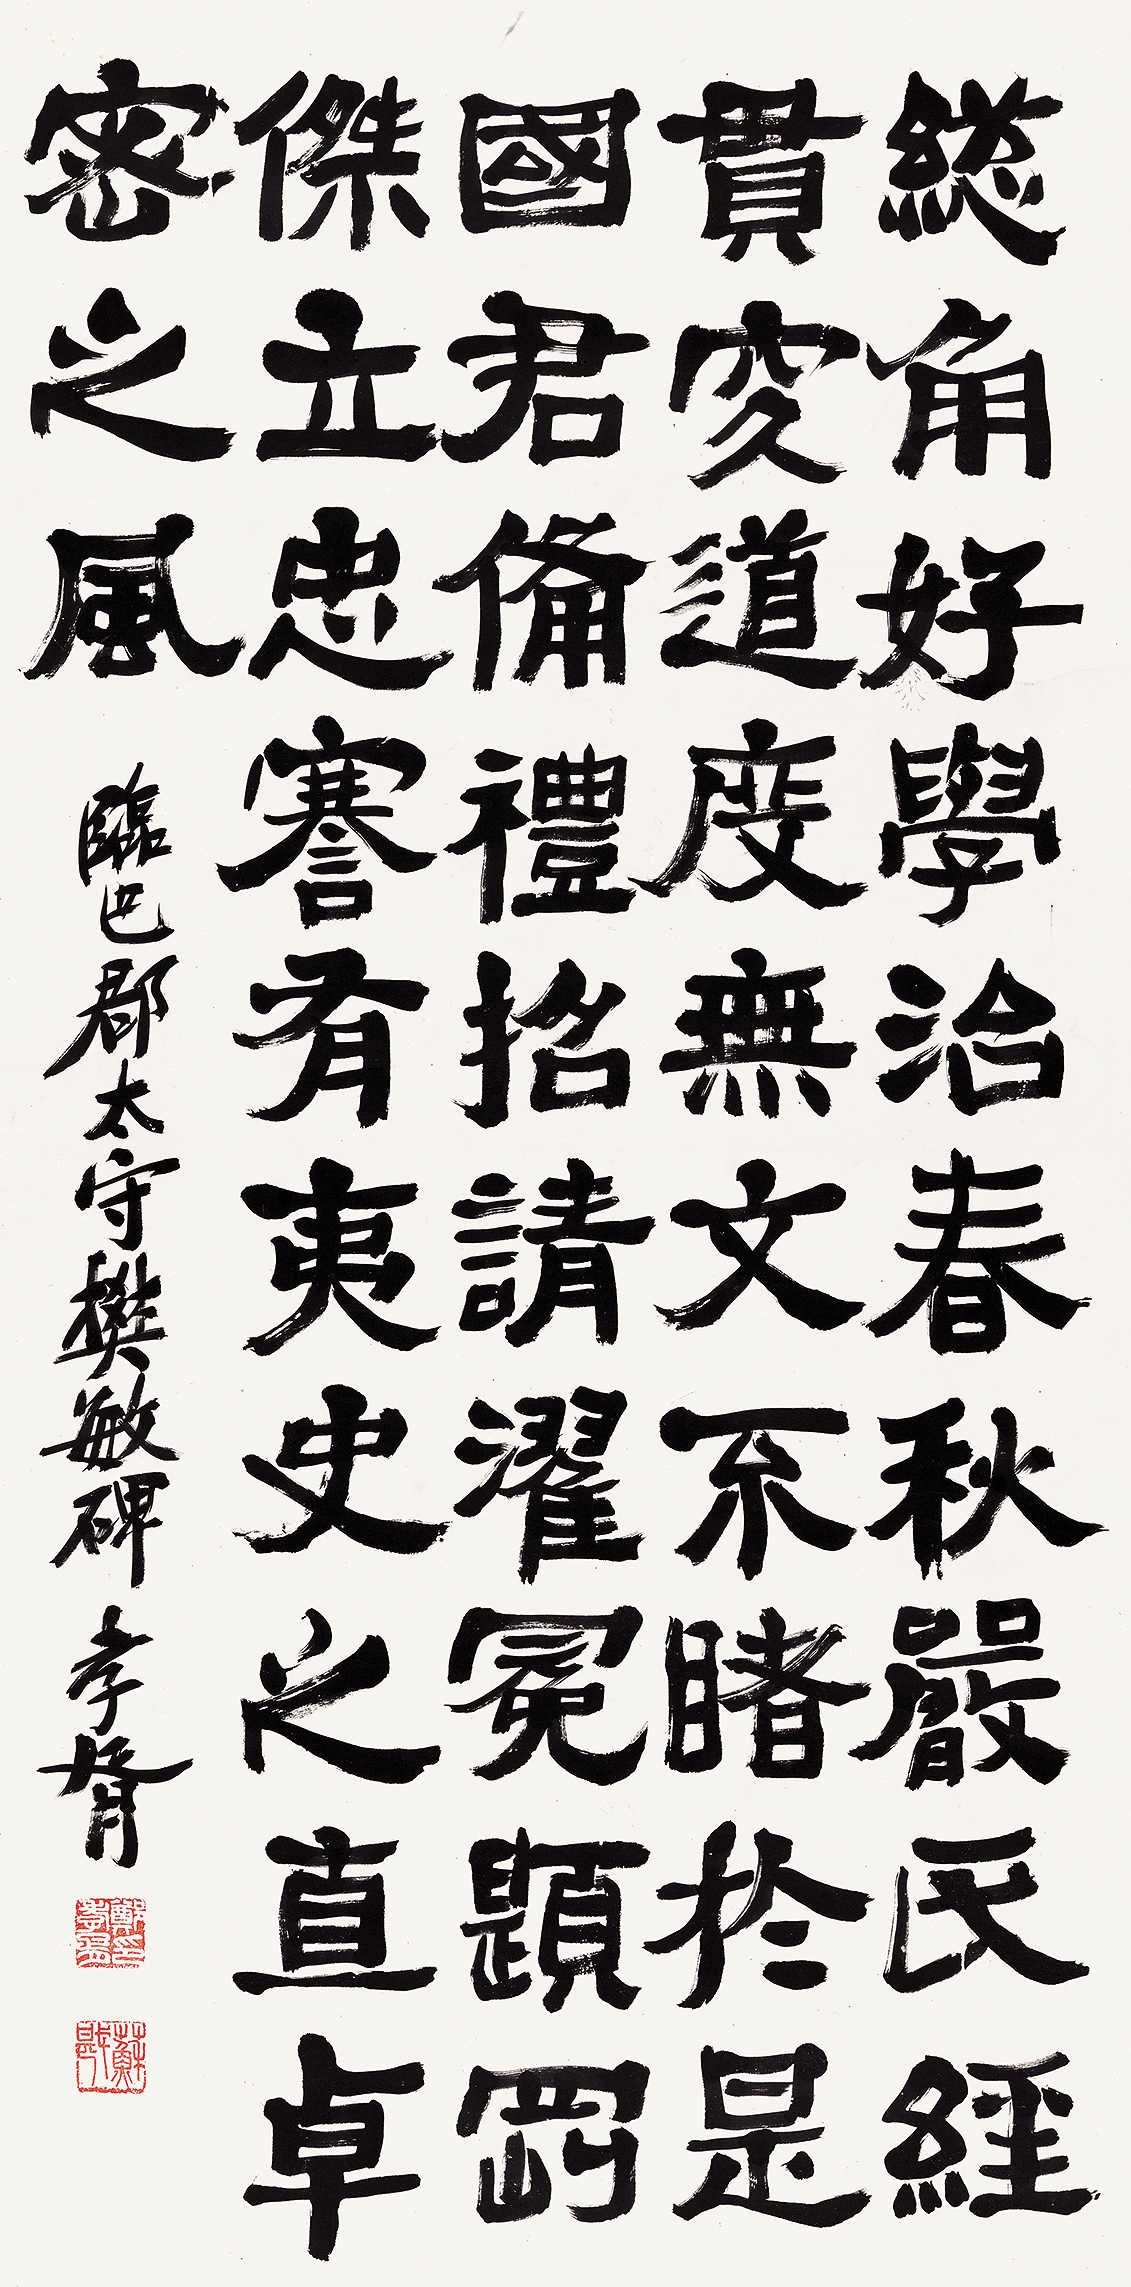 総角好學治春秋嚴氏經
貫究道度無文不睹於是
國君備禮招請濯冕題罔
傑立忠謇有夷史之直卓
密之風
臨巴郡太守樊敏碑 孝胥
鄭孝胥印
蘇戡